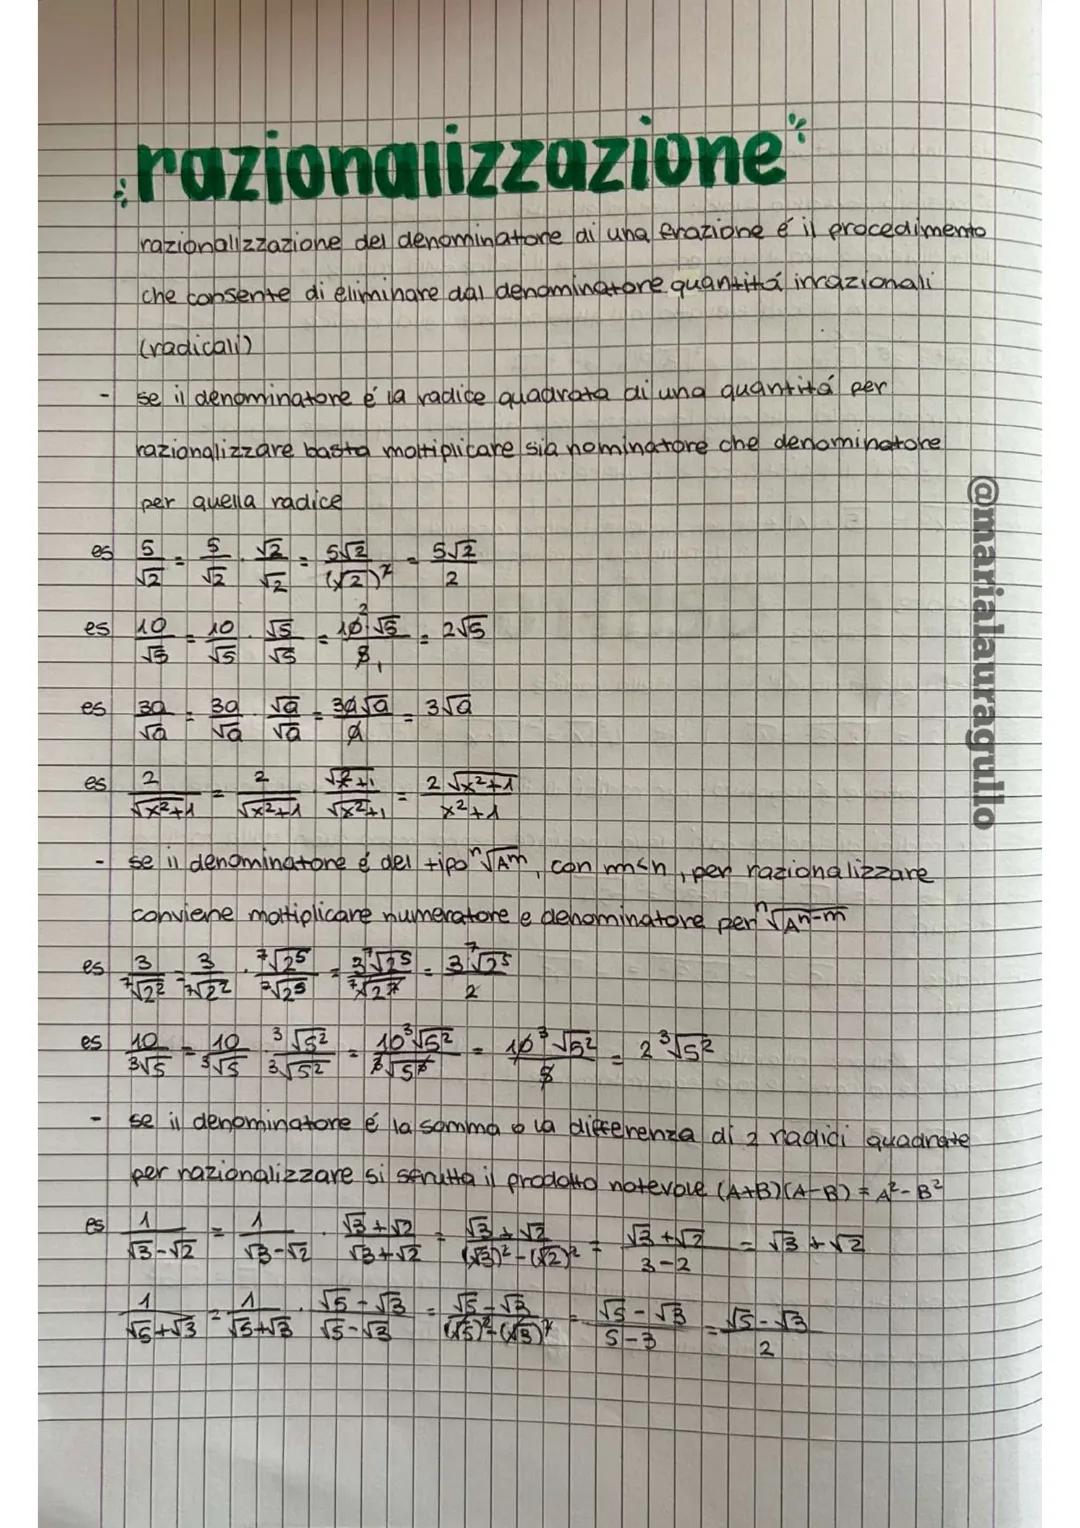 razionalizzazione
razionalizzazione del denominatore di una frazione é il procedimento
che consente di eliminare dal denominatore quantitá irrazionali
(radicali)
- se il denominatore é la radice quadrata di una quantitá per
razionalizzare basta moltiplicare sia nominatore che denominatore
per quella radice
es 5/√2 = 5/√2 · √2/√2 = 5√2/(√2)² = 5√2/2
es 10/√5 = 10/√5 · √5/√5 = 10² √5/5₁ = 2√5
es 3a/√a = 3a/√a · √a/√a = 3a√a/a = 3√a
es 2/√x²+1 = 2/√x²+1 · √x²+1/√x²+1 = 2√x²+1/x²+1
- se il denominatore é del tipo ⁿ√Aᵐ, con m<n, per razionalizzare
conviene moltiplicare numeratore e denominatore per ⁿ√Aⁿ⁻ᵐ
es 3/⁷√2² = 3/⁷√2² · ⁷√2⁵/⁷√2⁵ = 3⁷√2⁵/⁷√2⁷ = 3⁷√2⁵/2
es 10/³√5 = 10/³√5 · ³√5²/³√5² = 10³√5²/³√5³ = 10³√5²/5 = 2³√5²
- se il denominatore é la somma o la differenza di 2 radici quadrate
per razionalizzare si sfrutta il prodotto notevole (A+B)(A-B) = A²-B²
es 1/√3-√2 = 1/√3-√2 · √3+√2/√3+√2 = √3+√2/(√3)²-(√2)² = √3+√2/3-2 = √3+√2
1/√5+√3 = 1/√5+√3 · √5-√3/√5-√3 = √5-√3/(√5)²-(√3)² = √5-√3/5-3 = √5-√3/2
@marialauragullo